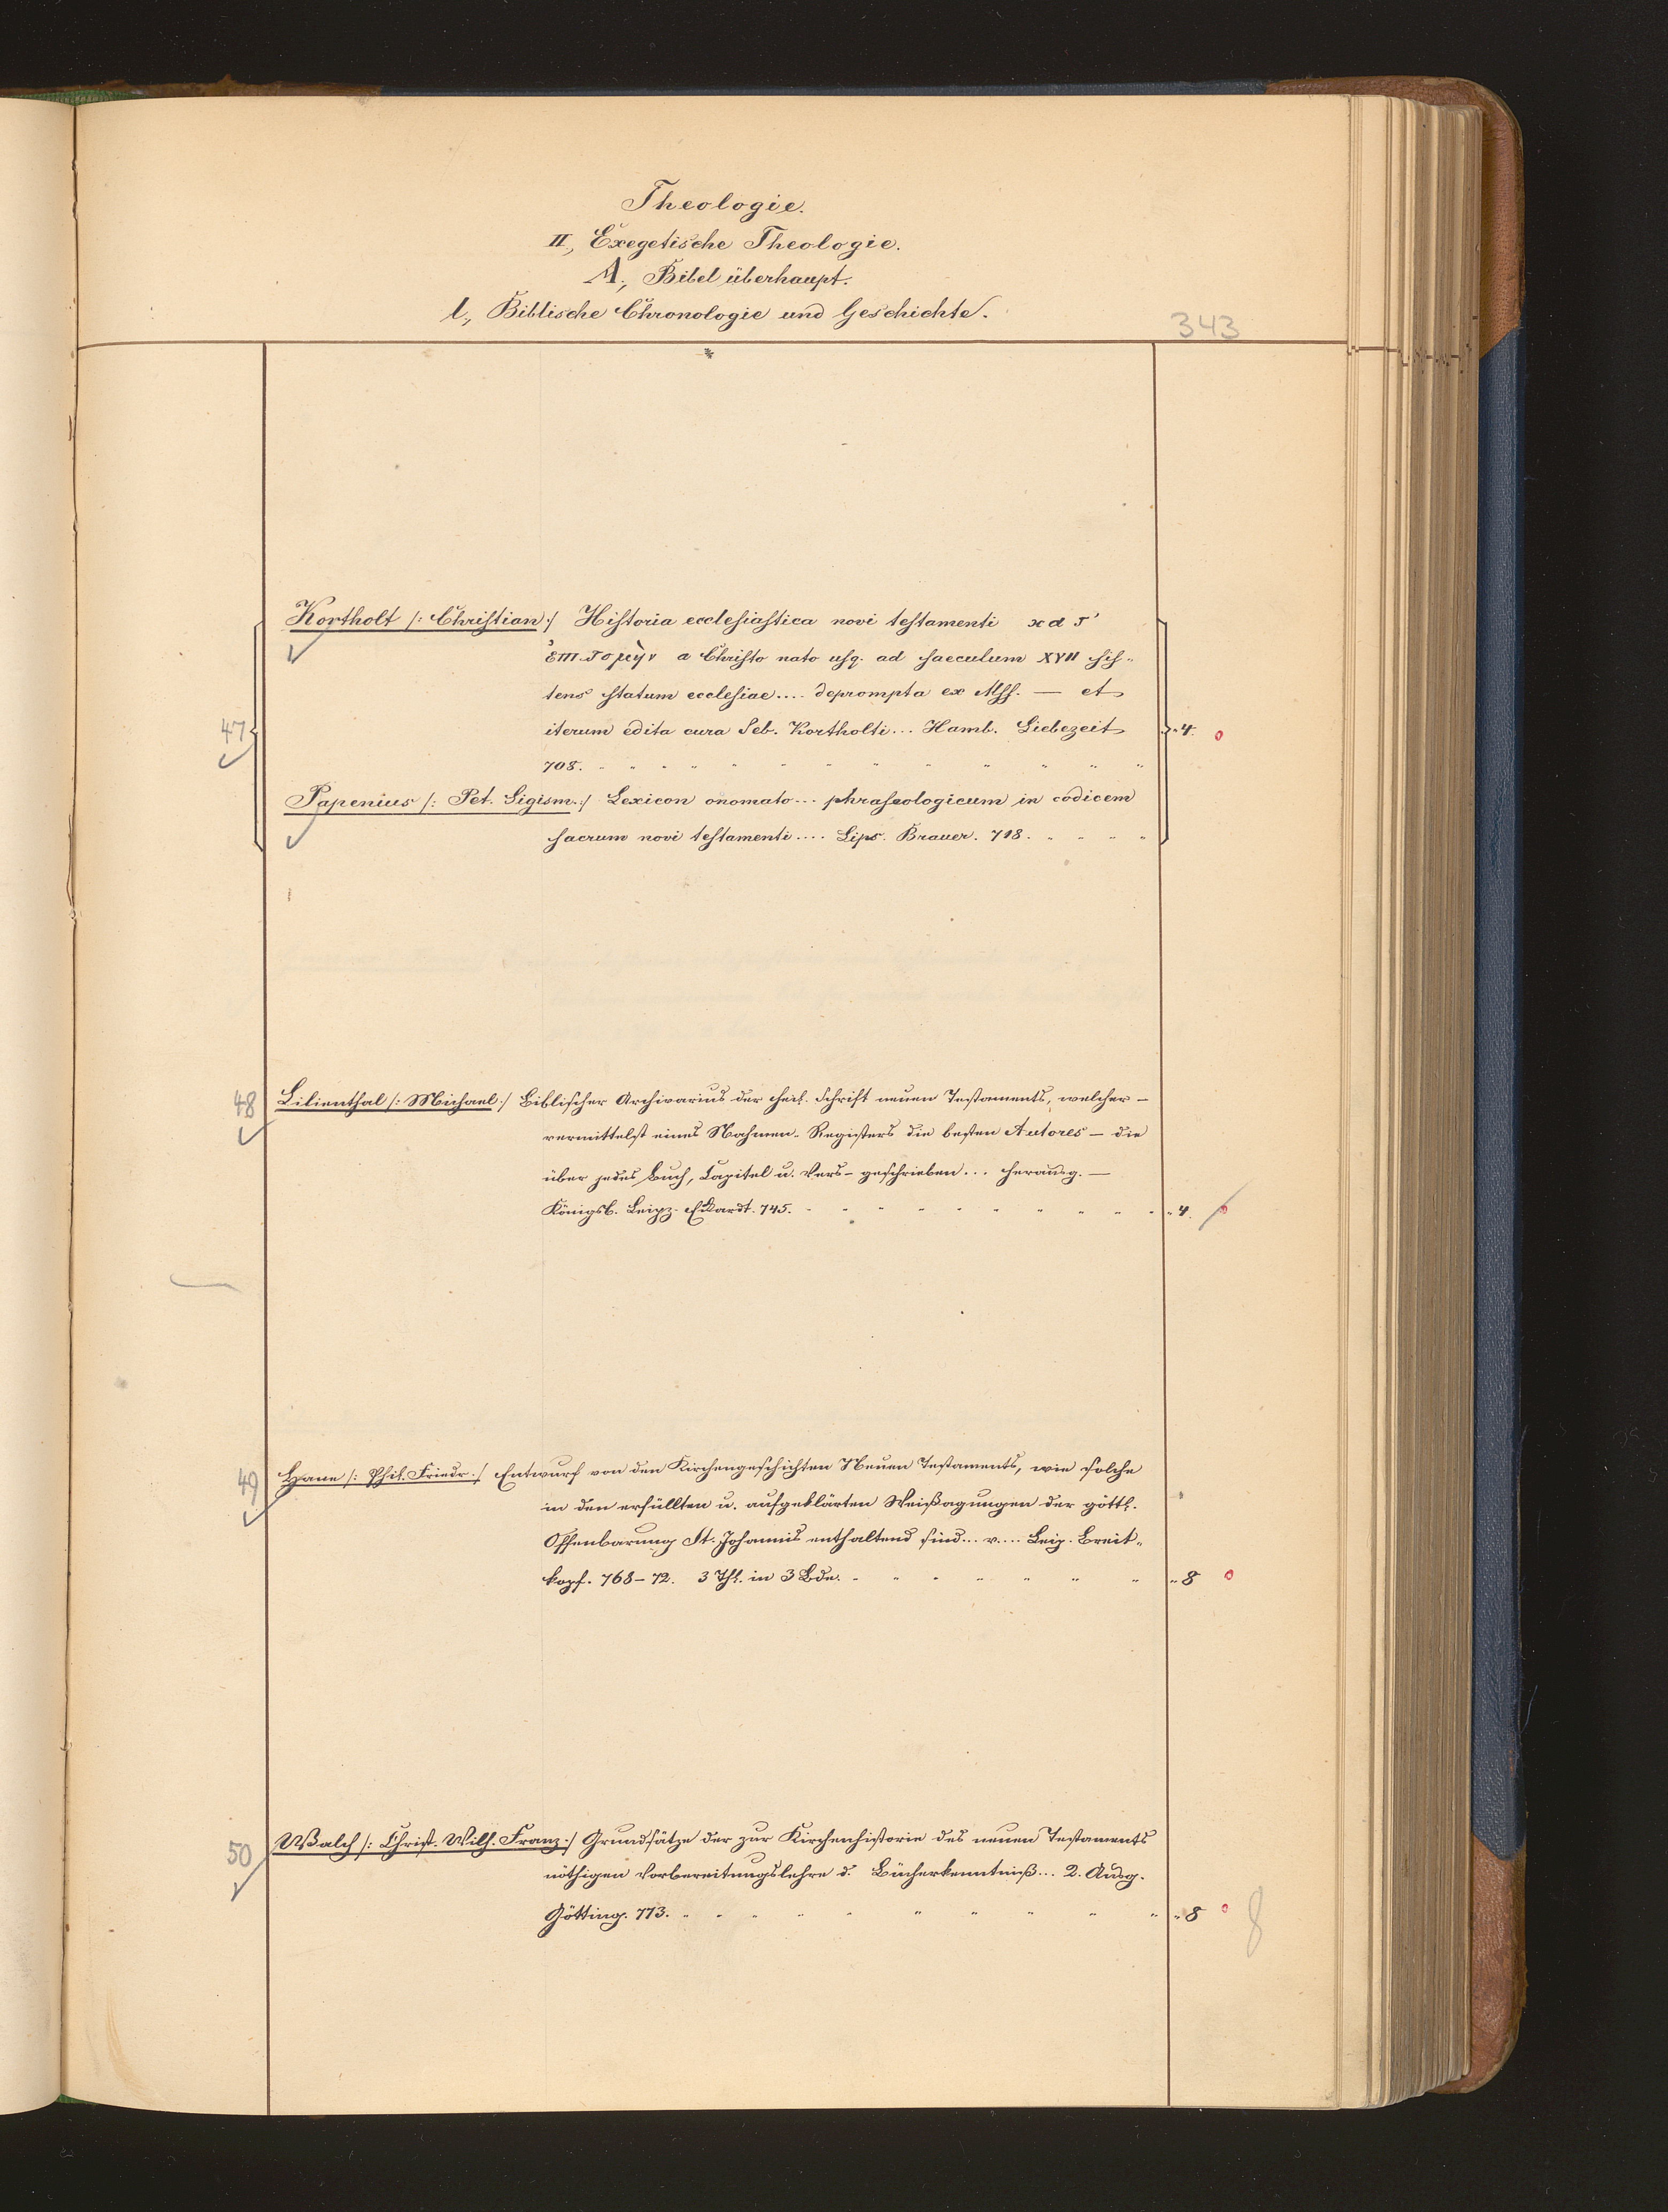 Theologie.
II., Exegetische Theologie.
A., Bibel überhaupt.
l., Biblische Chronologie und Geschichte.
343
*
Kortholt /: Christian :/ Historia ecclesiastica novi testamenti
a Christo nato usq. ad saeculum XVII sis-
tens statum ecclesiae.... deprompta ex Mss. — et
47 iterum edita cura Seb. Kortholti... Hamb. Liebezeit „ 4.
708.
Papenius /: Pet. Sigism. :/ Lexicon onomato... phraseologicum in codicem
sacrum novi testamenti.... Lips. Brauer. 718.
48 Lilienthal /: Michael :/ Biblischer Archivarius der heil. Schrift neuen Testaments, welcher —
vermittelst eines Nahmen-Registers die besten Autores — die
über jedes Buch, Capitel u. Vers — geschrieben... herausg. —
Königsb. Leipz. Eckardt. 745. „ 4.
49 Hane /: Phil. Friedr. :/ Entwurf von den Kirchengeschichten Neuen Testaments, wie solche
in den erfüllten u. aufgeklärten Weißagungen der göttl.
Offenbarung St. Johannis enthaltend sind... v.... Leip. Breit-
kopf. 768-72. 3 Thl. in 3 Bde. „ 8
50 Walch /: Christ. Wilh. Franz :/ Grundsätze der zur Kirchenhistorie des neuen Testaments
nöthigen Vorbereitungslehre d. Bücherkenntniß... 2. Ausg.
Götting. 773. „ 8
8